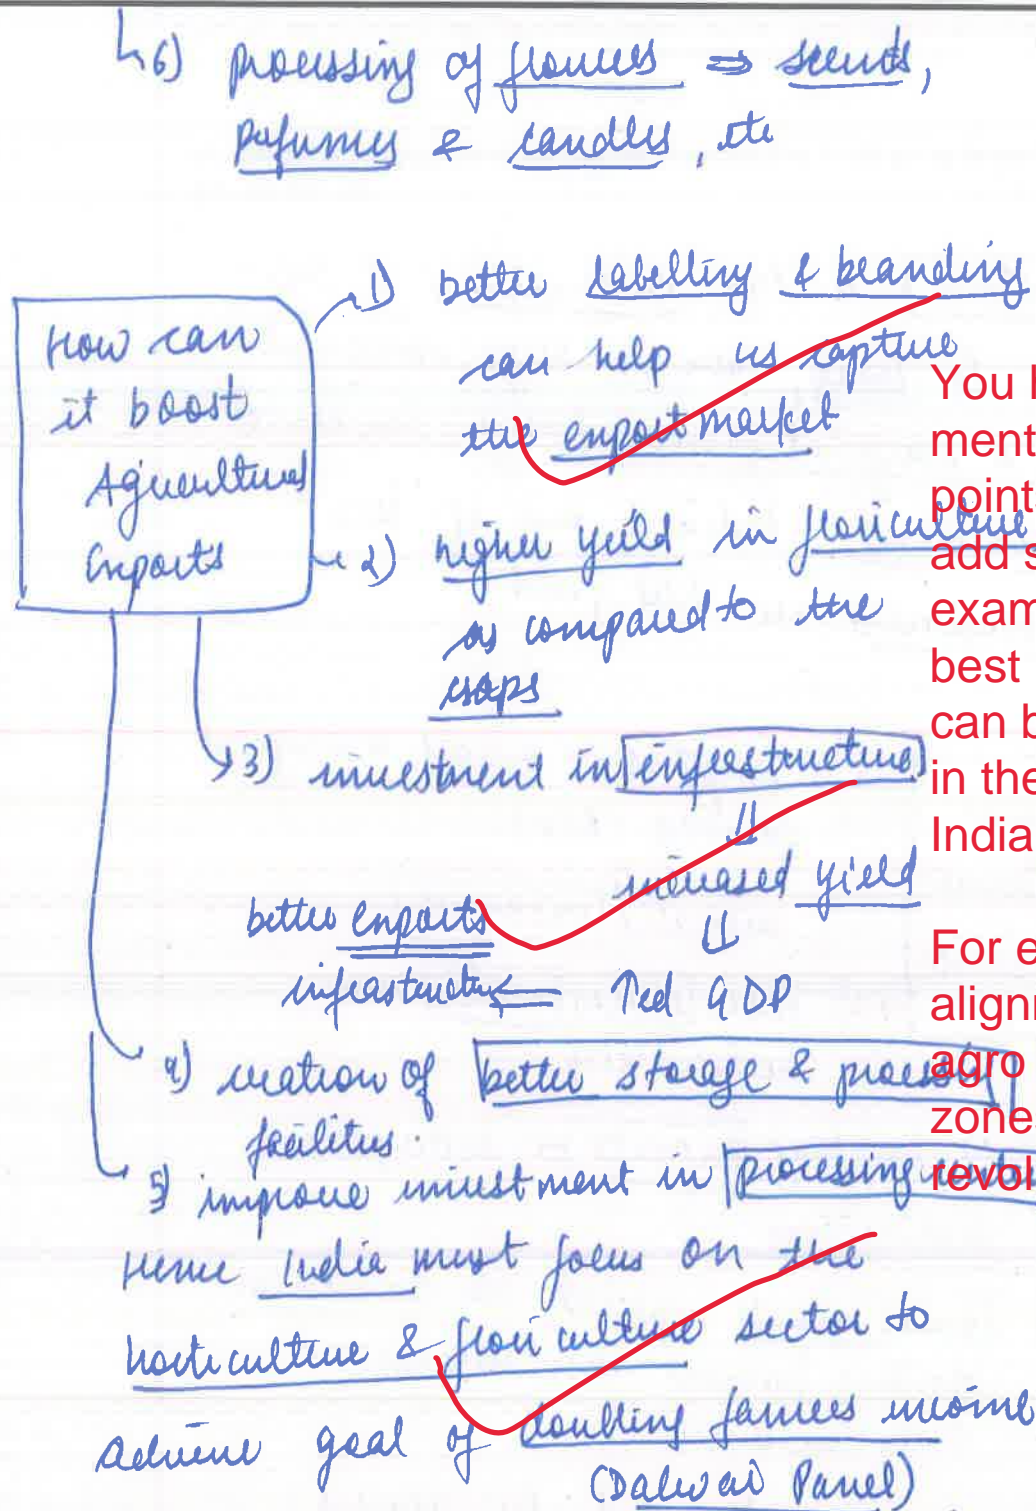 6) processing of flowers ⇒ scents,
perfumes & candles, etc
How can
it boost
Agricultural
Exports
1) better labelling & branding
can help us capture
the export market
2) higher yeild in floriculture
as compared to the
crops
3) investment in infrastructure
⇓
increased yield
⇓
↑ed GDP
⇐
better exports
infrastructure
4) creation of better storage & processing
facilities.
5) improve investment in processing
Hence India must focus on the
horticulture & floriculture sector to
achieve goal of doubling farmers income
(Dalwai Panel)
You
ment
point
add s
exam
best
can b
in the
India
For e
align
agro
zone
revol